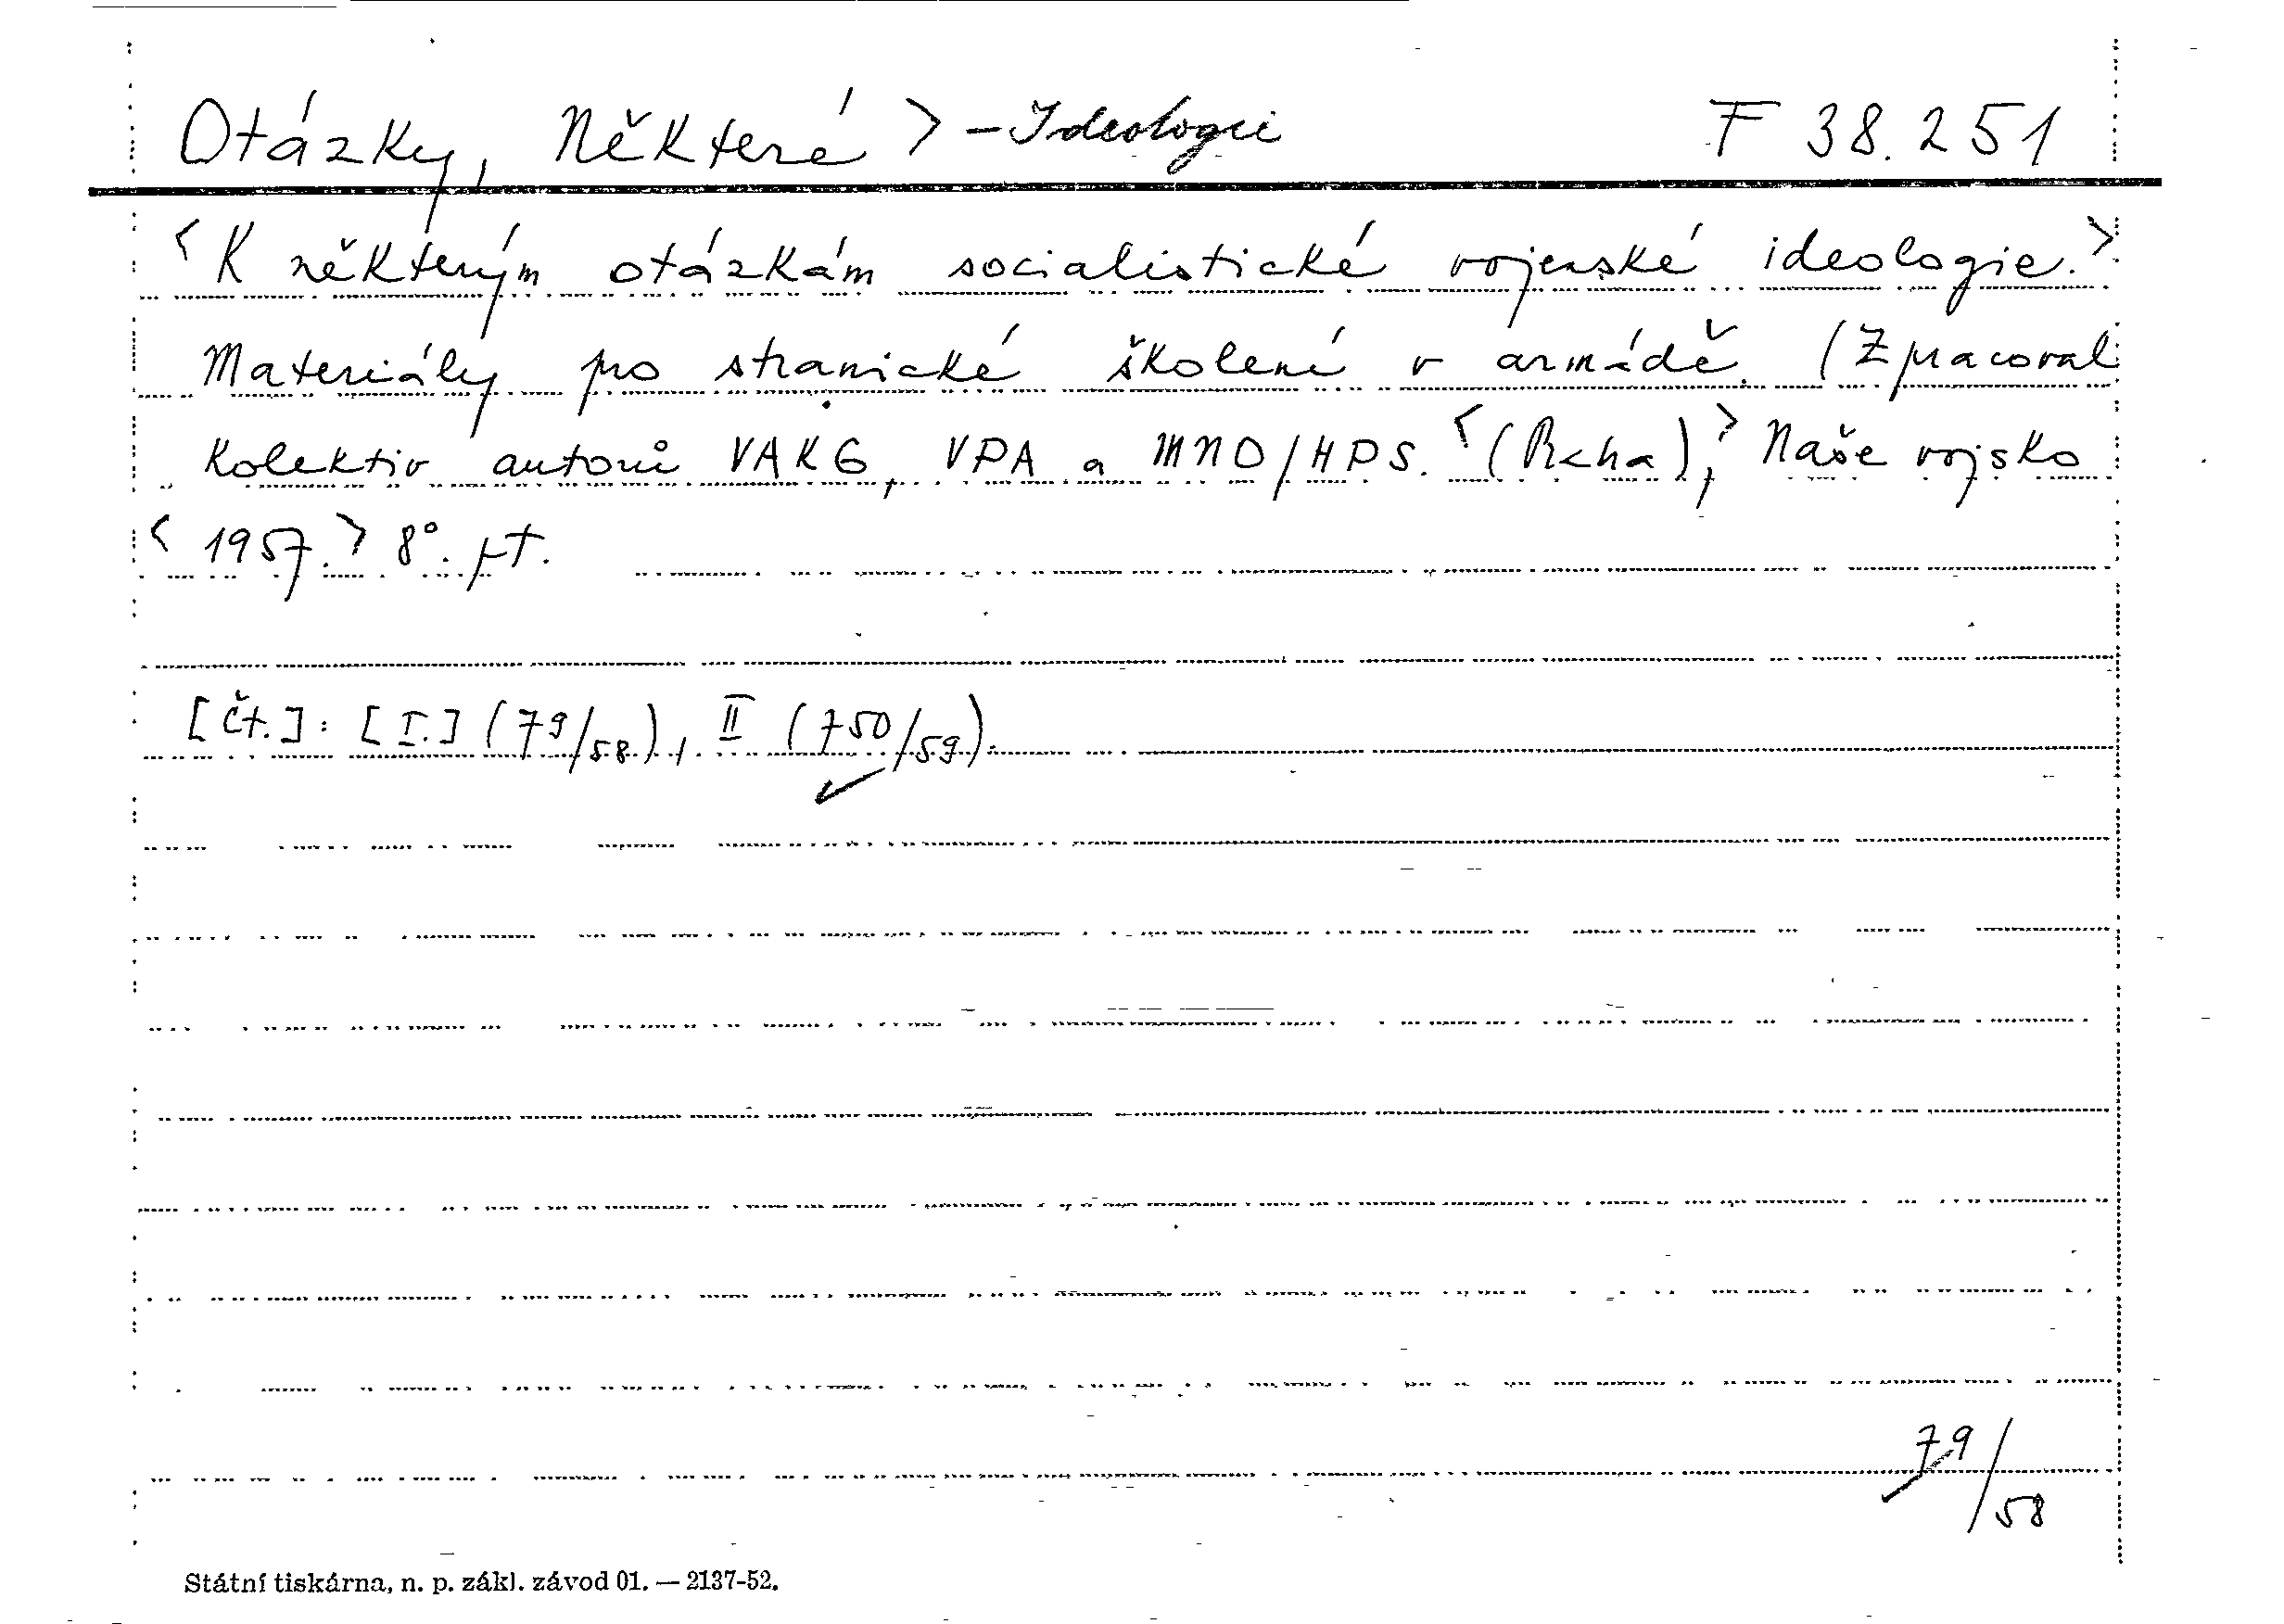 Otázky, Některé > - Ideologii F 38.251
<K některým otázkám socialistické vojenské ideologie.>
Materiály pro stranické školení v armádě. (Zpracoval
kolektiv autorů VAKG, VPA a MNO/HPS. <(Praha),> Naše vojsko
<1957.> 8°. pt.
[Čt.]: [I.] (79/58), II (750/59).
79/58
Státní tiskárna, n. p. zákl. závod 01. — 2137-52.